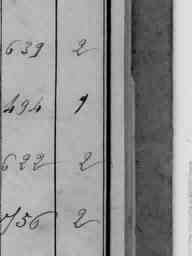 639 2
494 1
622 2
56 2